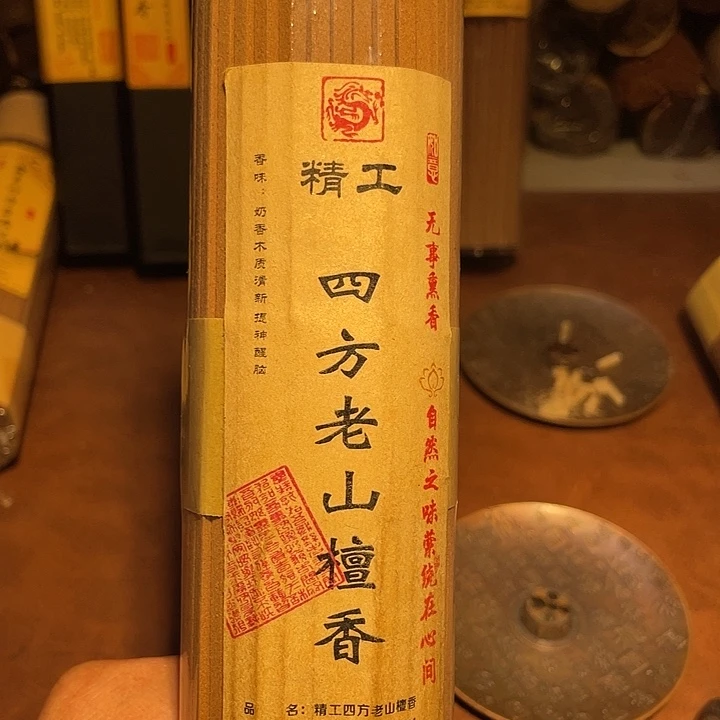 精工
四方老山檀香
香味：奶香木质清新提神醒脑
无事熏香
自然之味萦绕在心间
品 名：精工四方老山檀香